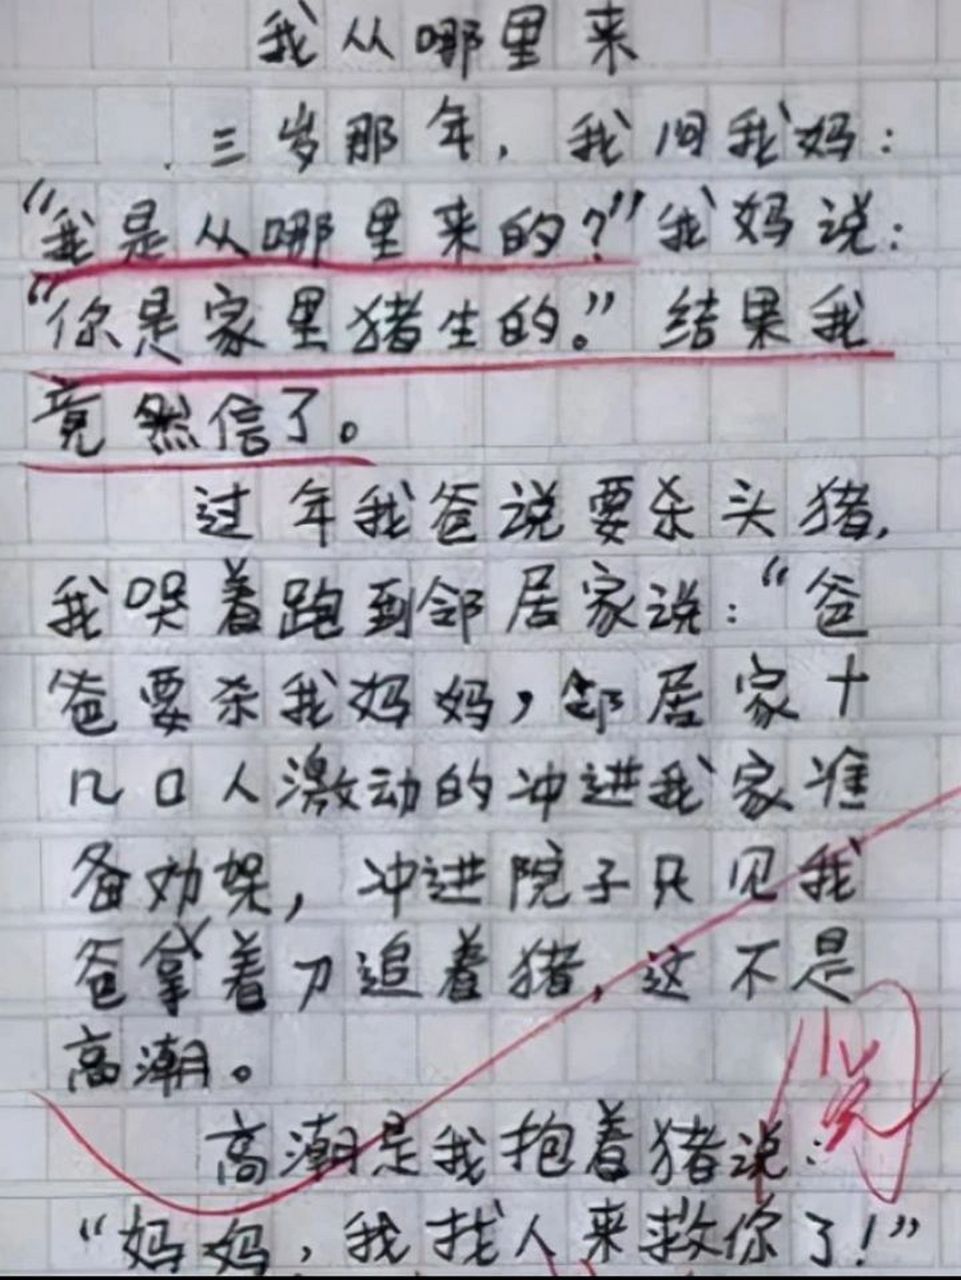 我从哪里来
三岁那年，我问我妈：
“我是从哪里来的？”我妈说：
“你是家里猪生的。”结果我
竟然信了。
过年我爸说要杀头猪，
我哭着跑到邻居家说：“爸
爸要杀我妈妈，邻居家十
几口人激动的冲进我家准
备劝架，冲进院子只见我
爸拿着刀追着猪，这不是
高潮。
高潮是我抱着猪说：
“妈妈，我找人来救你了！”
阅